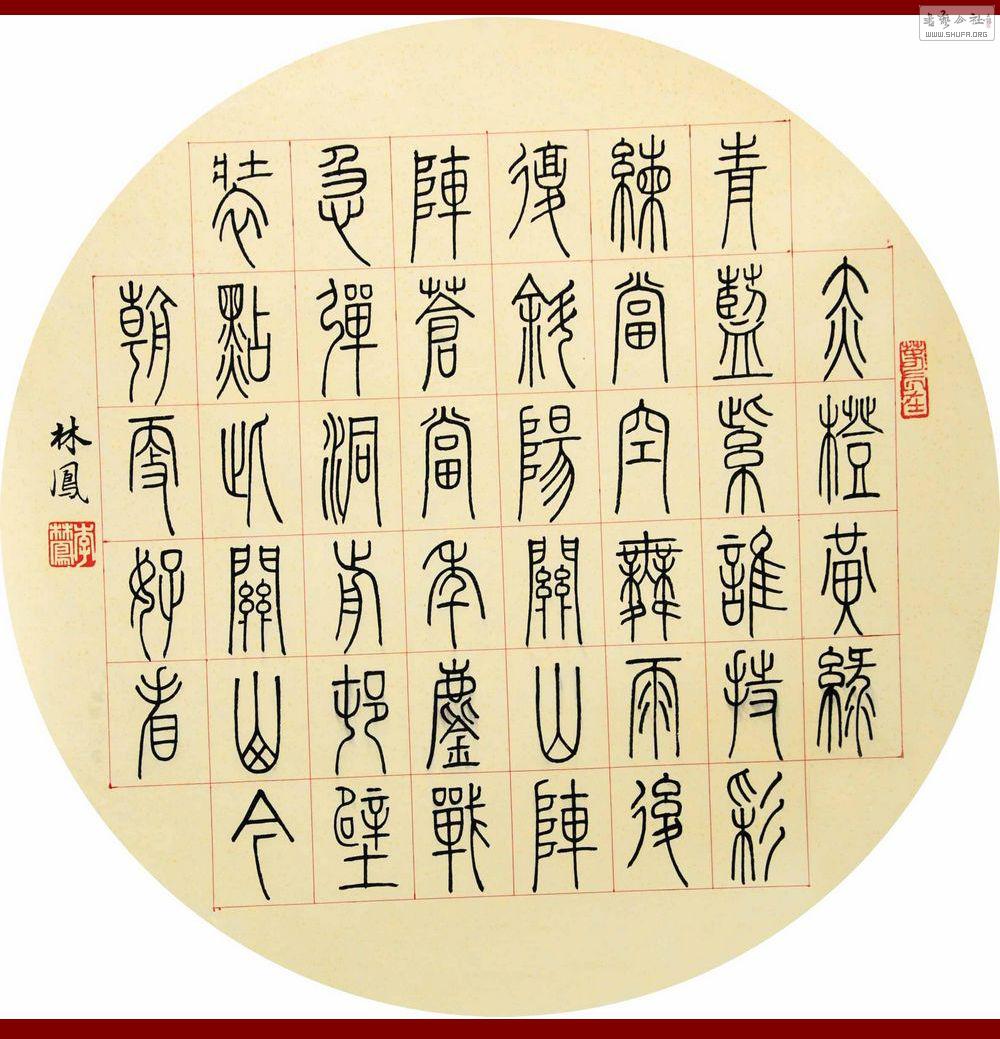 赤橙黃綠
青藍紫誰持彩
練當空舞雨後
復斜陽關山陣
陣蒼當年鏖戰
急彈洞前邨壁
裝點此關山今
朝更好看
林鳳
书艺公社
WWW.SHUFA.ORG